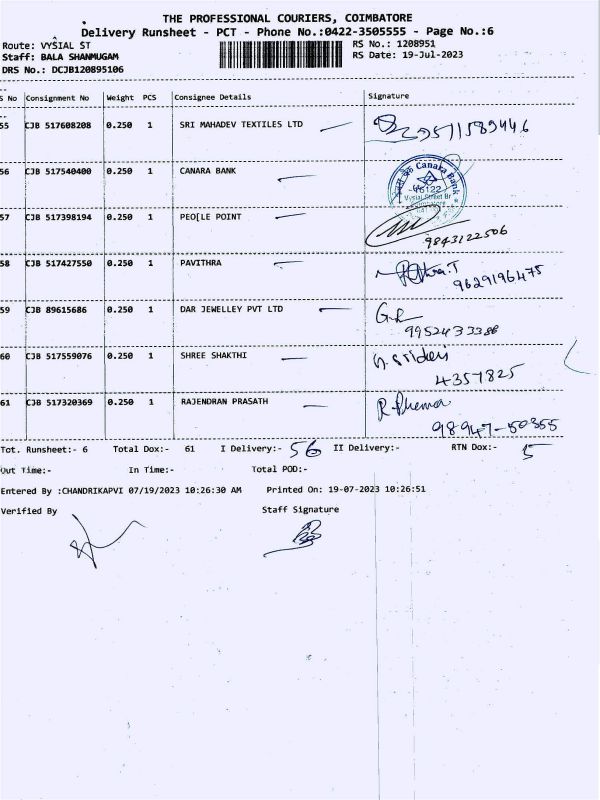 THE PROFESSIONAL COURIERS, COIMBATORE
Delivery Runsheet - PCT - Phone No.:0422-3505555 - Page No.:6
Route: VYSIAL ST RS No.: 1208951
Staff: BALA SHANMUGAM RS Date: 19-Jul-2023
DRS No.: DCJB120895106
S No Consignment No Weight PCS Consignee Details Signature
55 CJB 517608208 0.250 1 SRI MAHADEV TEXTILES LTD
56 CJB 517540400 0.250 1 CANARA BANK Canara Bank
Vysial Street Br
57 CJB 517398194 0.250 1 PEO[LE POINT
9843122506
58 CJB 517427550 0.250 1 PAVITHRA
9629196475
59 CJB 89615686 0.250 1 DAR JEWELLEY PVT LTD
9952433388
60 CJB 517559076 0.250 1 SHREE SHAKTHI
4357825
61 CJB 517320369 0.250 1 RAJENDRAN PRASATH
98947-50355
Tot. Runsheet:- 6 Total Dox:- 61 I Delivery:- 56 II Delivery:- RTN Dox:- 5
Out Time:- In Time:- Total POD:-
Entered By :CHANDRIKAPVI 07/19/2023 10:26:30 AM Printed On: 19-07-2023 10:26:51
Verified By Staff Signature